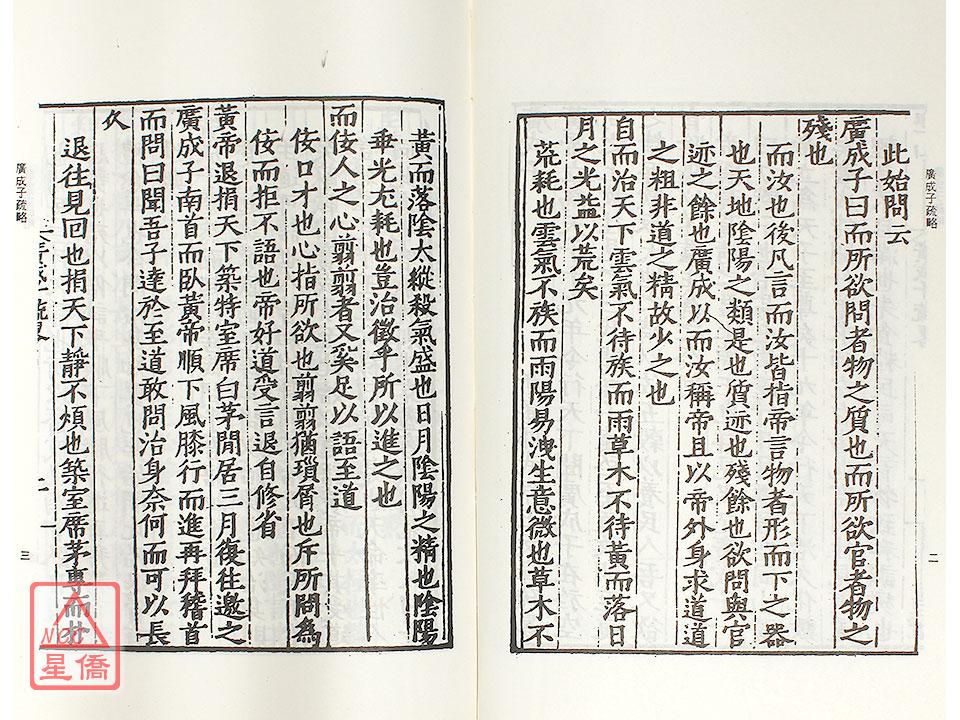 廣成子疏略
二
此始問云
廣成子曰而所欲問者物之質也而所欲官者物之
殘也
而汝也後凡言而汝皆指帝言物者形而下之器
也天地陰陽之類是也質迹也殘餘也欲問與官
迹之餘也廣成以而汝稱帝且以帝外身求道道
之粗非道之精故少之也
自而治天下雲氣不待族而雨草木不待黃而落日
月之光益以荒矣
荒耗也雲氣不族而雨陽易洩生意微也草木不
黃而落陰太縱殺氣盛也日月陰陽之精也陰陽
垂光尤耗也豈治徵乎所以進之也
而佞人之心翦翦者又奚足以語至道
佞口才也心指所欲也翦翦猶瑣屑也斥所問為
佞而拒不語也帝好道受言退自修省
黃帝退捐天下築特室席白茅閒居三月復往邀之
廣成子南首而臥黃帝順下風膝行而進再拜稽首
而問曰聞吾子達於至道敢問治身奈何而可以長
久
退往見回也捐天下靜不煩也築室席茅專而
廣成子疏略
三
星僑